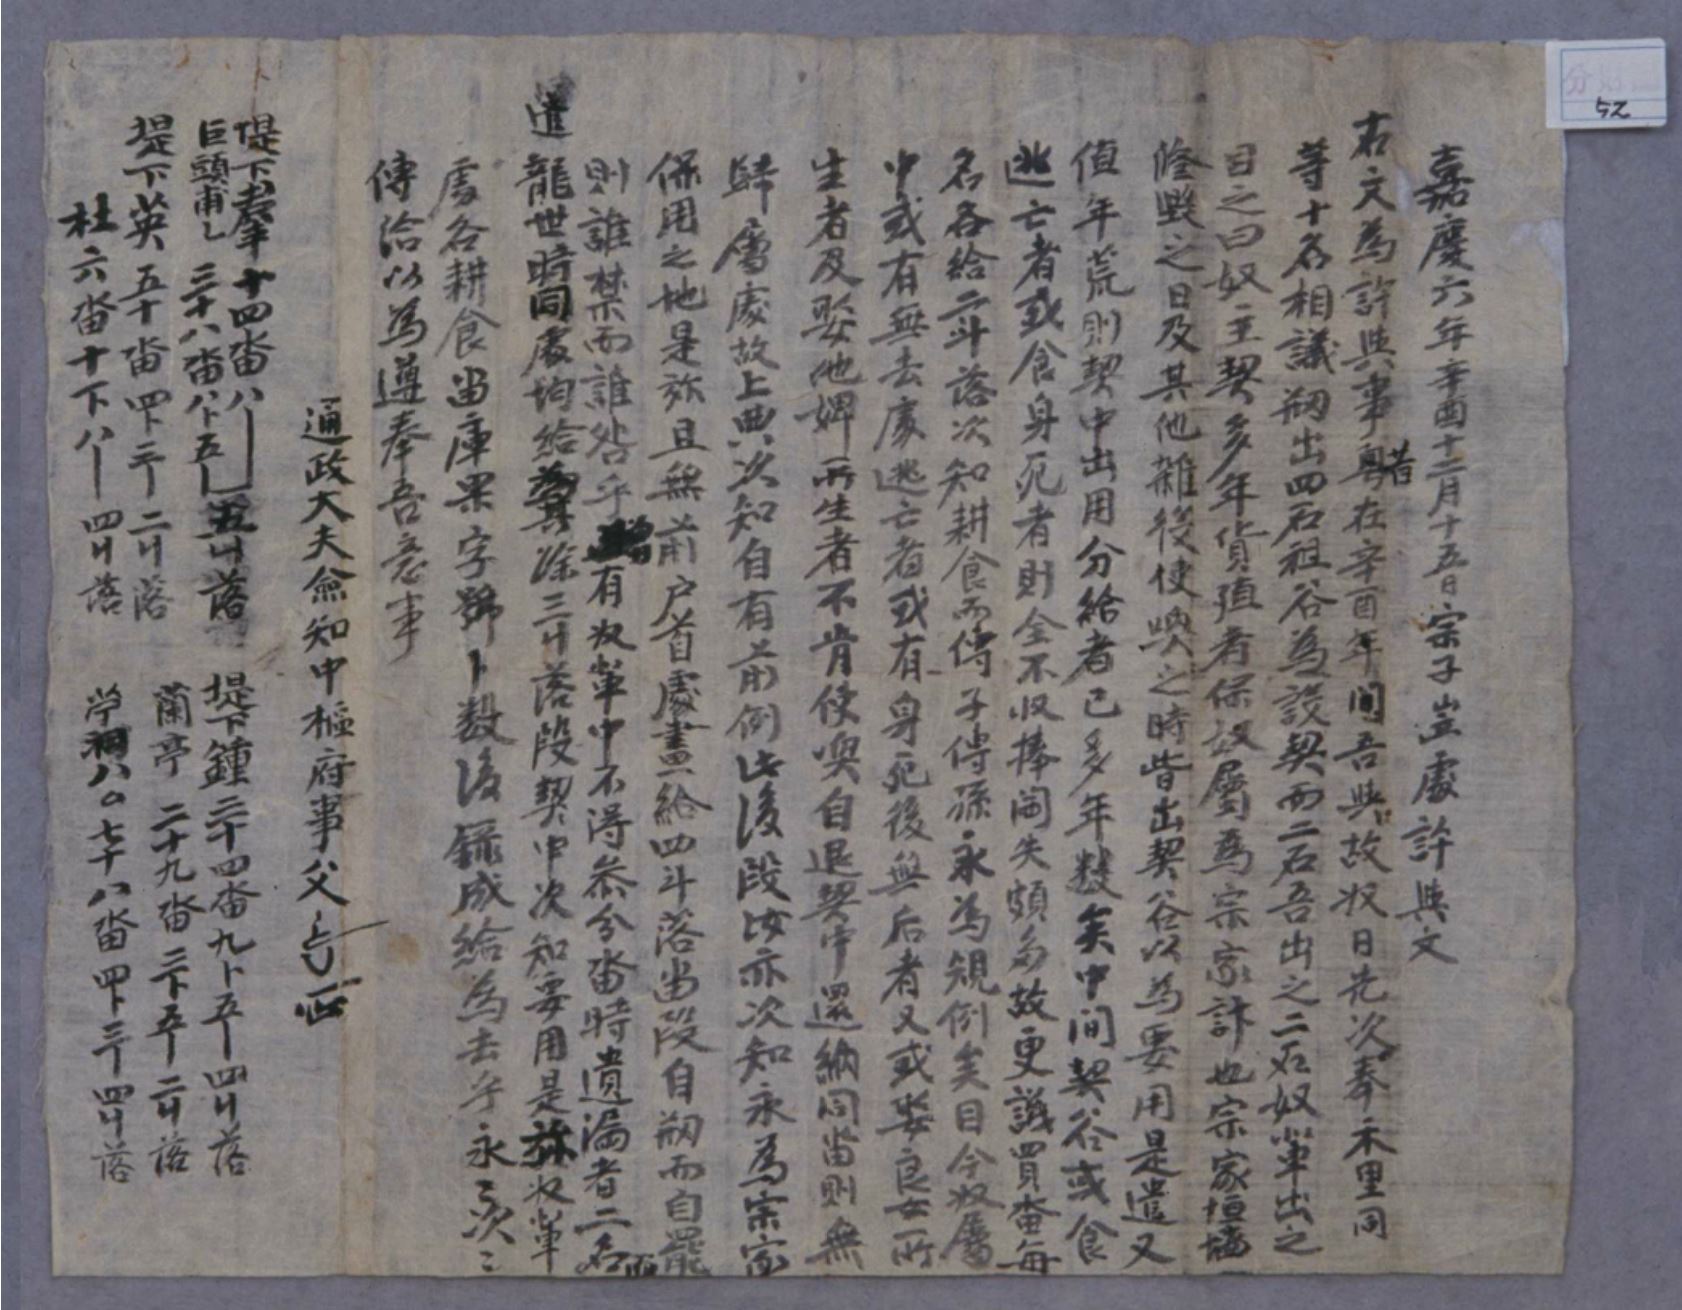 嘉慶六年辛酉十二月十五日宗子岦處許與文
右文為許與事粤昔在辛酉年間吾與故奴日先次奉禾里同
等十名相議刱出四石租谷為設契而二石吾出之二石奴軰出之
目之曰奴主契多年貨殖者保奴屬為宗家計也宗家垣墻
隆毀之日及其他雜役使喚之時皆出契谷以為要用是遣又
値年荒則契中出用分給者已多年數矣中間契谷或食
逃亡者或食身死者則全不收捧閪失頗多故更議買畓每
名各給二斗落次知耕食而傳子傳孫永為規例矣目今奴屬
中或有無去處逃亡者或有身死後無后者又或娶良女所
生者及娶他婢所生者不肯使喚自退契中還納同畓則無
歸屬處故上典次知自有前例此後段汝亦次知永為宗家
保用之地是旀且無前戶首處畫給四斗落畓段自刱而自罷
則誰禁而誰咎乎 有奴軰中不得叅分畓時遺漏者二名
遣龍世時同處均給 其除三斗落段契中次知要用是旀奴軰
處各耕食畓庫果字號卜數後錄成給為去乎永永次次
傳洽以為遵奉吾意事
通政大夫僉知中樞府事父
堤下 十四畓八卜
巨頭甫乙 三十八畓八卜五卜 五斗落
堤下英五十畓四卜三卜二斗落
杜六畓十下八卜四斗落
堤下鍾二十四畓九卜五卜四斗落
蘭亭二十九畓三卜五卜二斗落
八七十八畓四卜三卜四斗落
分
52